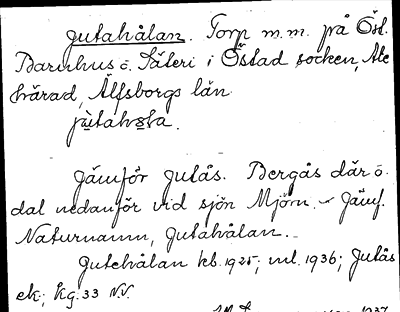 Jutahålan. Torp m.m. på Öst.
Barnhus o. Säteri i Östad socken, Ale
härad, Älfsborgs län
Jämför Jutås. Bergås där o.
dal nedanför vid sjön Mjörn. - Jämf.
Naturnamn, Jutahålan.
Jutehålan kb. 1925; ml. 1936; Jutås
ek; Kg. 33 N.V.
1937